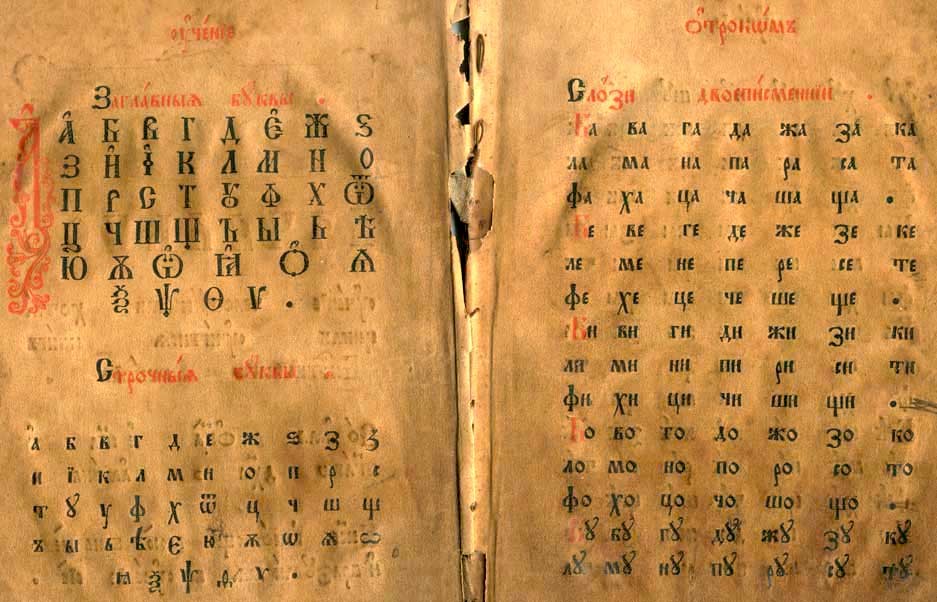 Оу҆че́нїе
Загла́вныѧ бꙋ́квы .
А҆ Б В Г Д Є҆ Ж Ѕ
З И҆ І҆ К Л М Н О
П Р С Т Ꙋ Ф Х Ѿ
Ц Ч Ш Щ Ъ Ы Ь Ѣ
Ю Ѫ Ѽ Ꙗ҆ Ѻ҆ Ѧ
Ѯ Ѱ Ѳ Ѵ .
Стро́чныѧ бꙋ́квы
а б в г д е ж ѕ з ꙁ
и ї к л м н ю п р с
т ꙋ у ф х ѿ ц ч ш щ
ъ ы ь ѣ є ю ѫ ѡ ѧ ѡ
ꙗ ѯ ѱ ѳ ѵ .
Ѻ҆трокѡ́мъ
Сло́зи двоепи́сменнїи .
Ба ва га да жа за ка
ла ма на па ра са та
фа ха ца ча ша ща .
Бе ве ге де же зе ке
ле ме не пе ре се те
фе хе це че ше ще .
Би ви ги ди жи зи ки
ли ми ни пи ри си ти
фи хи ци чи ши щи .
Бо во го до жо зо ко
ло мо но по ро со то
фо хо цо чо шо що .
Бꙋ вꙋ гꙋ дꙋ жꙋ зꙋ кꙋ
лꙋ мꙋ нꙋ пꙋ рꙋ сꙋ тꙋ